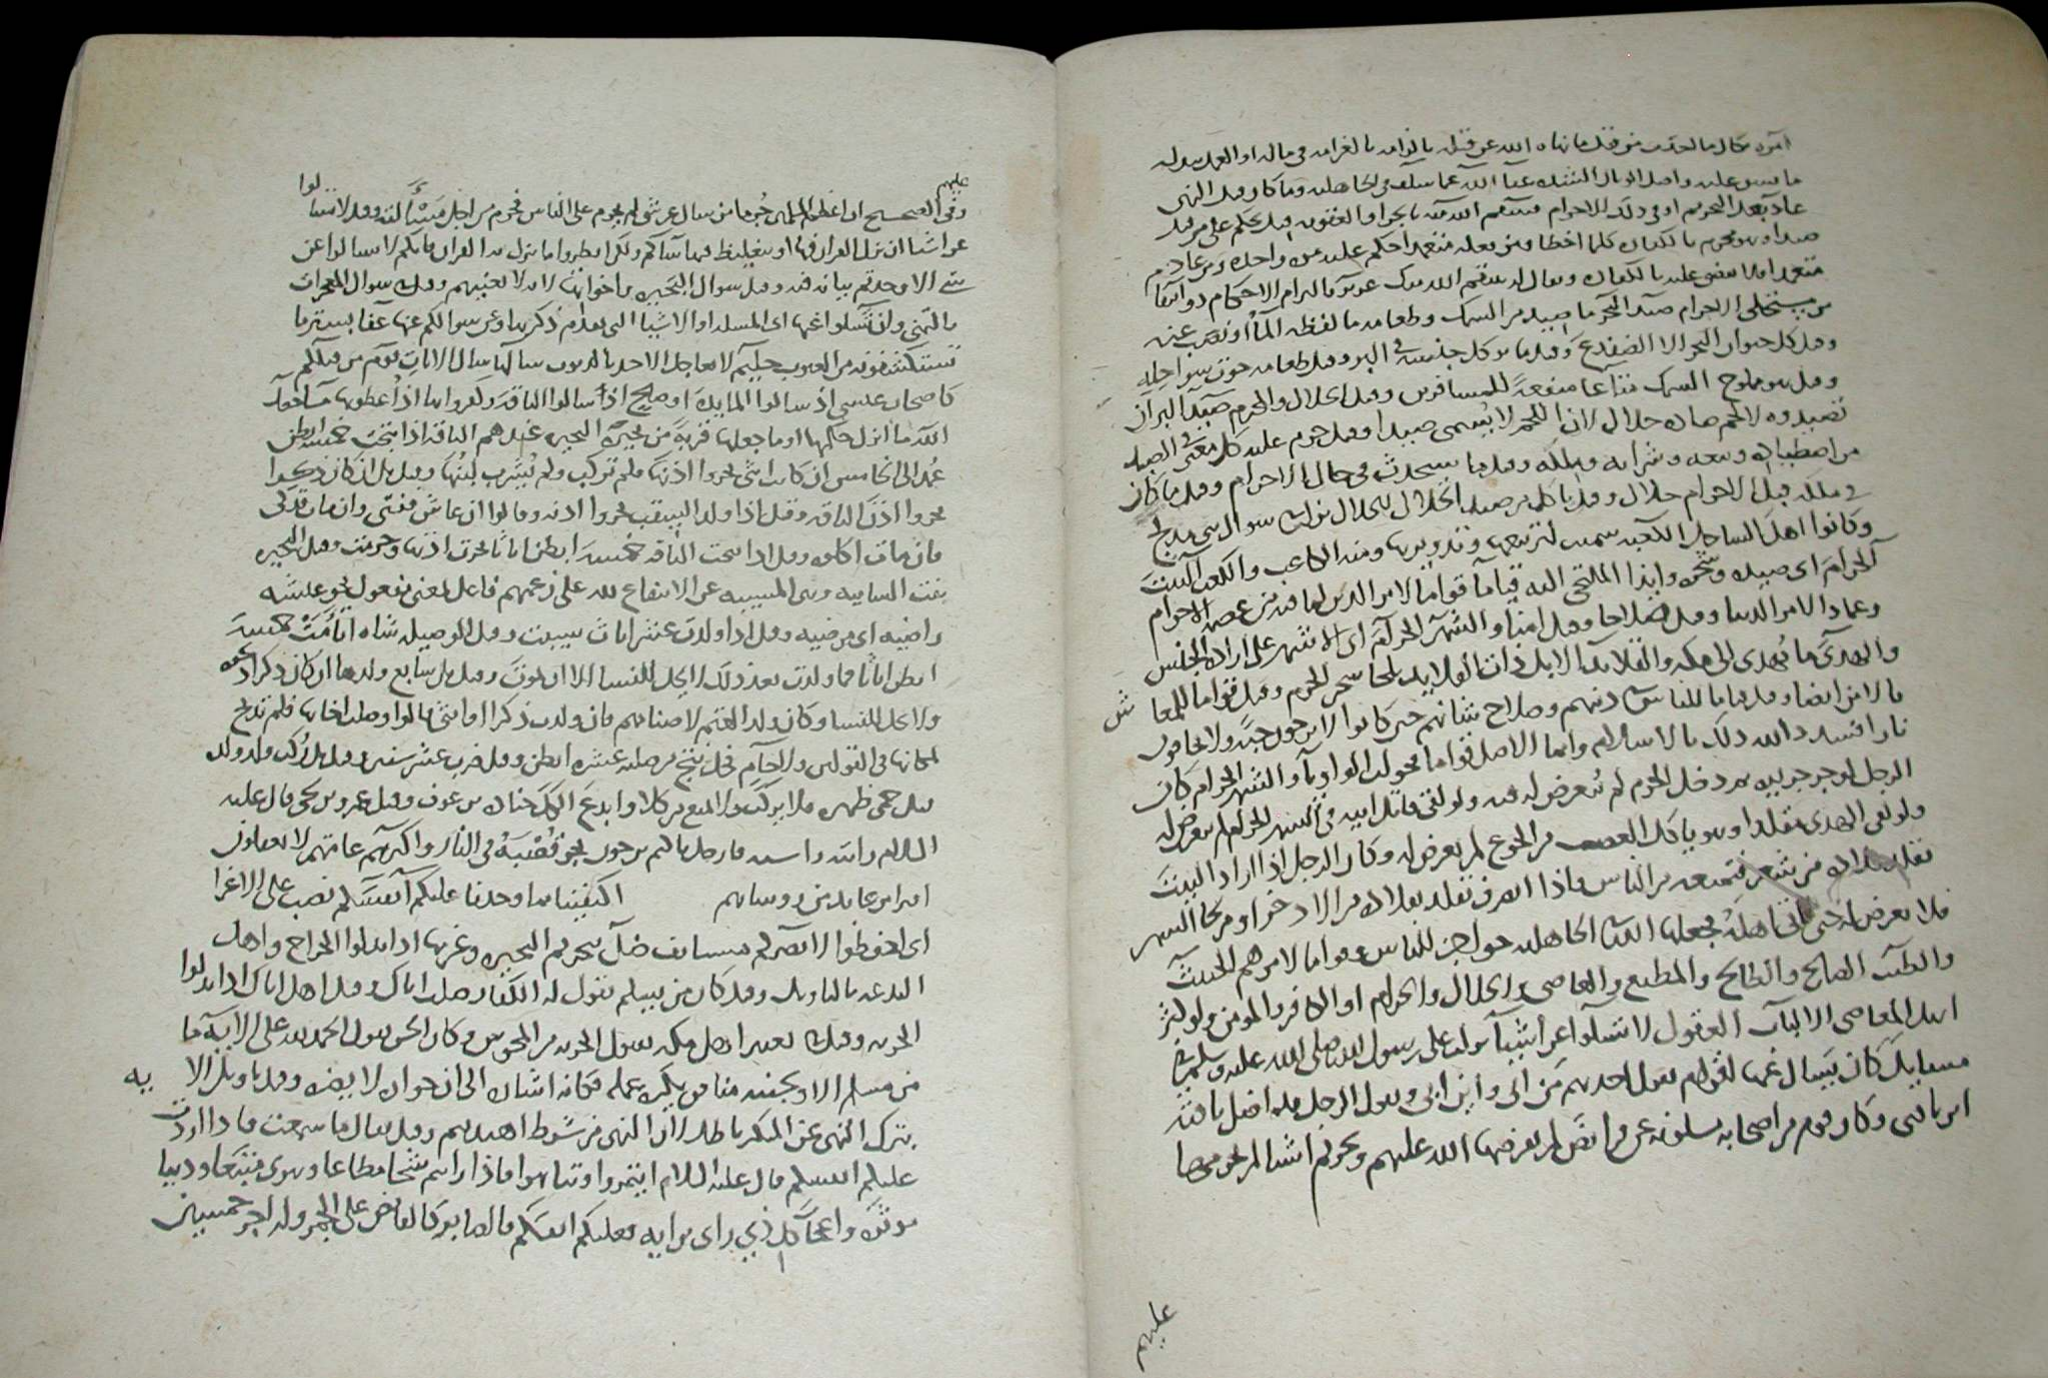 امره وقال ما لحدث من قتل ما نهاه الله عن قتله بالغرامه في ماله او
ما سبق عليه واصل الوبال الثقل عفا الله عما سلف في الجاهليه وما كان قبل النهي
عاد بعد التحريم او في ذلك الاحرام فينتقم الله منه بالجزا والعقوبه قيل يحكم على من قتل
صيدا وهو محرم بالكفاره كلما اخطا ومن فعله متعمدا حكم عليه مره واحده ومن عاد
متعمدا يقضى عليه بالكفاره ويقال له ينتقم الله منك عزيز بالزام الاحكام ذو انتقام
من مستحلي الحرام صيد البحر ما صيد من السمك وطعامه ما لفظه الما او نضب عنه
وقيل كل حيوان البحر الا الضفدع وقيل ما يوكل جنسه في البر وقيل طعامه حوت سواحله
وقيل هو مملوح السمك متاعا منفعة للمسافرين وقيل الحلال والمحرم صيد البر ان
تصيدوه لا لحم صاده حلال لان اللحم لا يسمى صيدا وقيل حرم عليه كل معنى في الصيد
من اصطياده وبيعه وشرايه وملكه وقيل ما يستحدث في حال الاحرام وقيل ما كان
في ملكه قبل الاحرام حلال وقيل ياكل من صيد الحلال للحلال سوال
وكانوا اهل الساحل الكعبه سميت لتربيعها وتدويرها ومنه الكاعب والكعب البيت
الحرام اي صيده وشجره وايذا الملتجي اليه قياما قواما لامر الدين لما فيه من عصمة الاحرام
وعمادا لامر الدنيا وقيل صلاحا وقيل امنا والشهر الحرام اي الاشهر على اراده الجنس
والهدي ما يهدى الى مكه والقلايد الابل ذات القلايد بلحا شجر الحرم وقيل قواما للمعاش
بالامن ايضا وقيل قياما للناس دينهم وصلاح شانهم حين كانوا لا يرجون جنة ولا يخافون
نارا فشدد الله ذلك بالاسلام وانما الاصل قواما فحولت الواو يا والشهر الحرام كان
الرجل لو جر جريره ثم دخل الحرم لم يعرض له فيه ولو لقي قاتل ابيه في الشهر الحرام لم يعرض له
ولو لقي الهدي مقلدا وهو ياكل العصب من الجوع لم يعرض له وكان الرجل اذا اراد البيت
تقلد قلاده من شعر فتمنعه من الناس واذا انصرف تقلد بقلاده من الاذخر او من لحا الشجر
فلا يعرض له حتى ياتي اهله فجعلها الله في الجاهليه حواجز للناس وقواما لامرهم الخبيث
والطيب الصالح والطالح والمطيع والعاصي والحلال والحرام او الكافر والمومن ولو كثر
اهل المعاصي الالباب العقول لا تسالوا عن اشيا نزلت على رسول الله صلى الله عليه وسلم في
مسايل كان يسال عنها لقولهم يقول احدهم من ابي واين ابي ويقول الرجل يضل ناقته
اين ناقتي وكان قوم من اصحابه يسلونه عن فرايض لم يفرضها الله عليهم وتحريم اشيا لم يحرمها
عليهم
عليهم
وفي الصحيح ان اعظم المسلمين جرما من سال عن شي لم يحرم على الناس فحرم من اجل مسالته وقيل لا تسالوا
عن اشيا ان نزل القران فيها او بتغليظ فيها ساكم ولكن انظروا ما نزل به القران فانكم لا تسالوا عن
شي الا وجدتم بيانه فيه وقيل سوال البحيره واخواتها لانه لا يعنيهم وقيل سوال المعجزات
بالتمني وان تسلوا عنها اي المسله او الاشيا التي تقدم ذكرها وعن سوالكم عنها عفا بستر ما
تستكشفونه من العيوب حليم لا يعاجل الاحد بالذنوب سالها سال الايات قوم من قبلكم
كاصحاب عيسى اذ سالوا المايده وصالح اذ سالوا الناقه وكفروا بها اذ اعطوها ما جعل
الله ما انزل حكمها او ما جعلها قربة من بحيرة البحيره عندهم الناقه اذا نتجت خمسة ابطن
عمد الى الخامس ان كانت انثى بحروا اذنها فلم تركب ولم يشرب لبنها وقيل بل ان كان ذكرا
بحروا اذن الناقه وقيل اذا ولد السقب بحروا اذنه وقالوا ان عاش ففتي وان مات فذكي
فان مات اكلوه وقيل اذا نتجت الناقه خمسة ابطن اناثا بحرت اذنها وحرمت وقيل البحيره
بنت السايبه وهي المسيبه عن الانتفاع لله على زعمهم فاعل بمعنى مفعول نحو عيشه
راضيه اي مرضيه وقيل اذا ولدت عشر اناث سيبت وقيل الوصيله شاه اتامت خمسة
ابطن اناثا فما ولدت بعد ذلك لا يحل للنسا الا ان يموت وقيل بل سابع ولدها ان كان ذكرا ذبحوه
ولا يحل للنسا وكان ولد الغنم لاصنامهم فان ولدت ذكرا او انثى قالوا وصلت اخاها فلم تذبح
لمكانها في القولين ولا حام فحل نتج من صلبه عشره ابطن وقيل ضرب عشر سنين وقيل بل ركب ولد ولده
قيل حمى ظهره فلا يركب ولا يمنع من كلا وابدع الكل جناده بن عوف وقيل عمرو بن لحي قال عليه
السلام رايته يجر قصبه في النار واكثرهم عامتهم لا يعقلون
اكتفينا بما وجدنا عليكم انفسكم نصب على الاغرا
اي احفظوا لا يضركم مستانف ضل بتحريم البحيره وغيرها اذا بذلوا الخراج واهل
البدعه بالتاويل وقيل كان من يسلم تقول له الكفار ضللت اباك وقيل اهل الكتاب اذا بذلوا
الجزيه وقيل اهل مكه بقبول الجزيه من المجوس وكان الحسن يقول الحمد لله على الاية ما
من مسلم الا وبجنبه منافق يكره عمله فكانه اشار الى ان جواره لا يضره وقيل تاويل الايه
بترك النهي عن المنكر باطل لان النهي من شروط اهتديتم وقيل ما سمعت
عليكم انفسكم قال عليه السلام ايتمروا وتناهوا فاذا رايتم شحا مطاعا وهوى متبعا ودنيا
موثره واعجاب كل ذي راي برايه فعليكم انفسكم فالصابر كالقابض على الجمر وله اجر خمسين